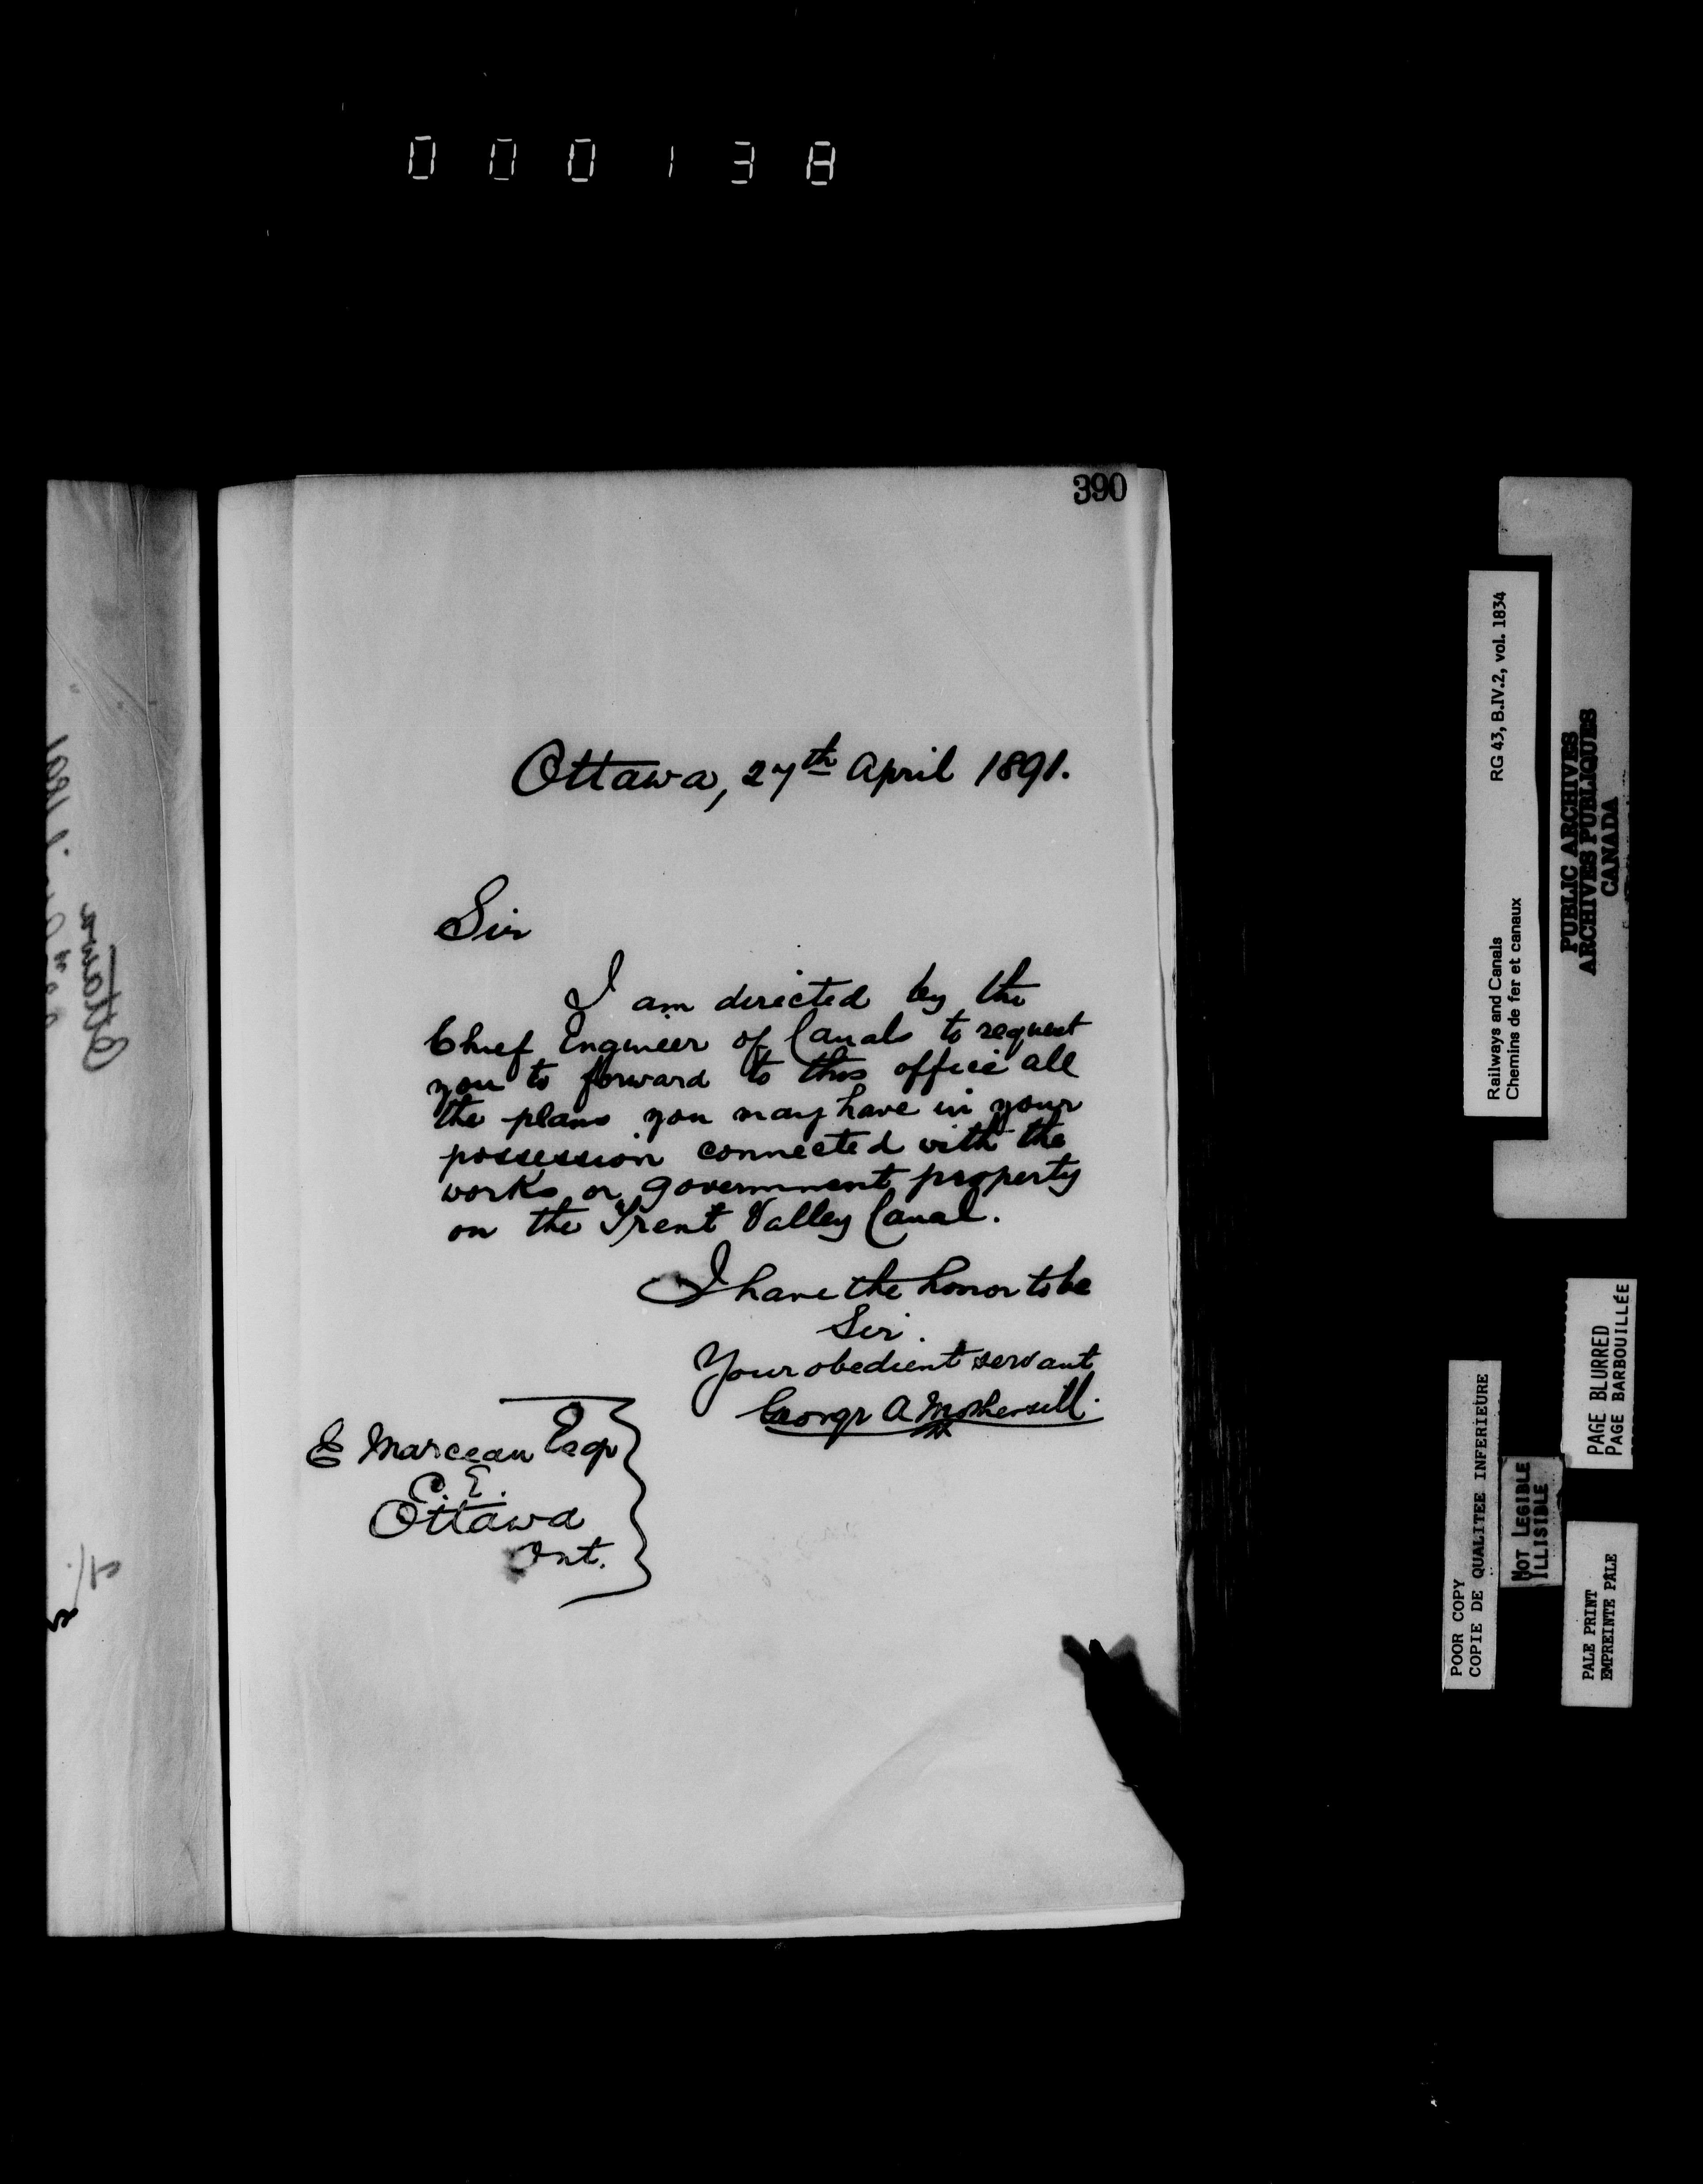 000138
390
Ottawa, 27th April 1891.
Sir
I am directed by the
Chief Engineer of Canals to request
you to forward to this office all
the plans you may have in your
possession connected with the
works or government property
on the Trent Valley Canal.
I have the honor to be
Sir.
Your obedient servant
George A Mothersill.
E Marceau Esqr
C. E.
Ottawa
Ont.
Ottawa
RG 43, B.IV.2, vol. 1834
Railways and Canals
Chemins de fer et canaux
PUBLIC ARCHIVES
ARCHIVES PUBLIQUES
CANADA
PAGE BLURRED
PAGE BARBOUILLÉE
POOR COPY
COPIE DE QUALITEE INFERIEURE
NOT LEGIBLE
ILLISIBLE
PALE PRINT
EMPREINTE PALE